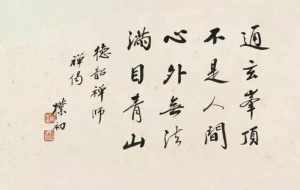 通玄峯頂
不是人間
心外無法
滿目青山
德韶禪師
禪偈
樸初